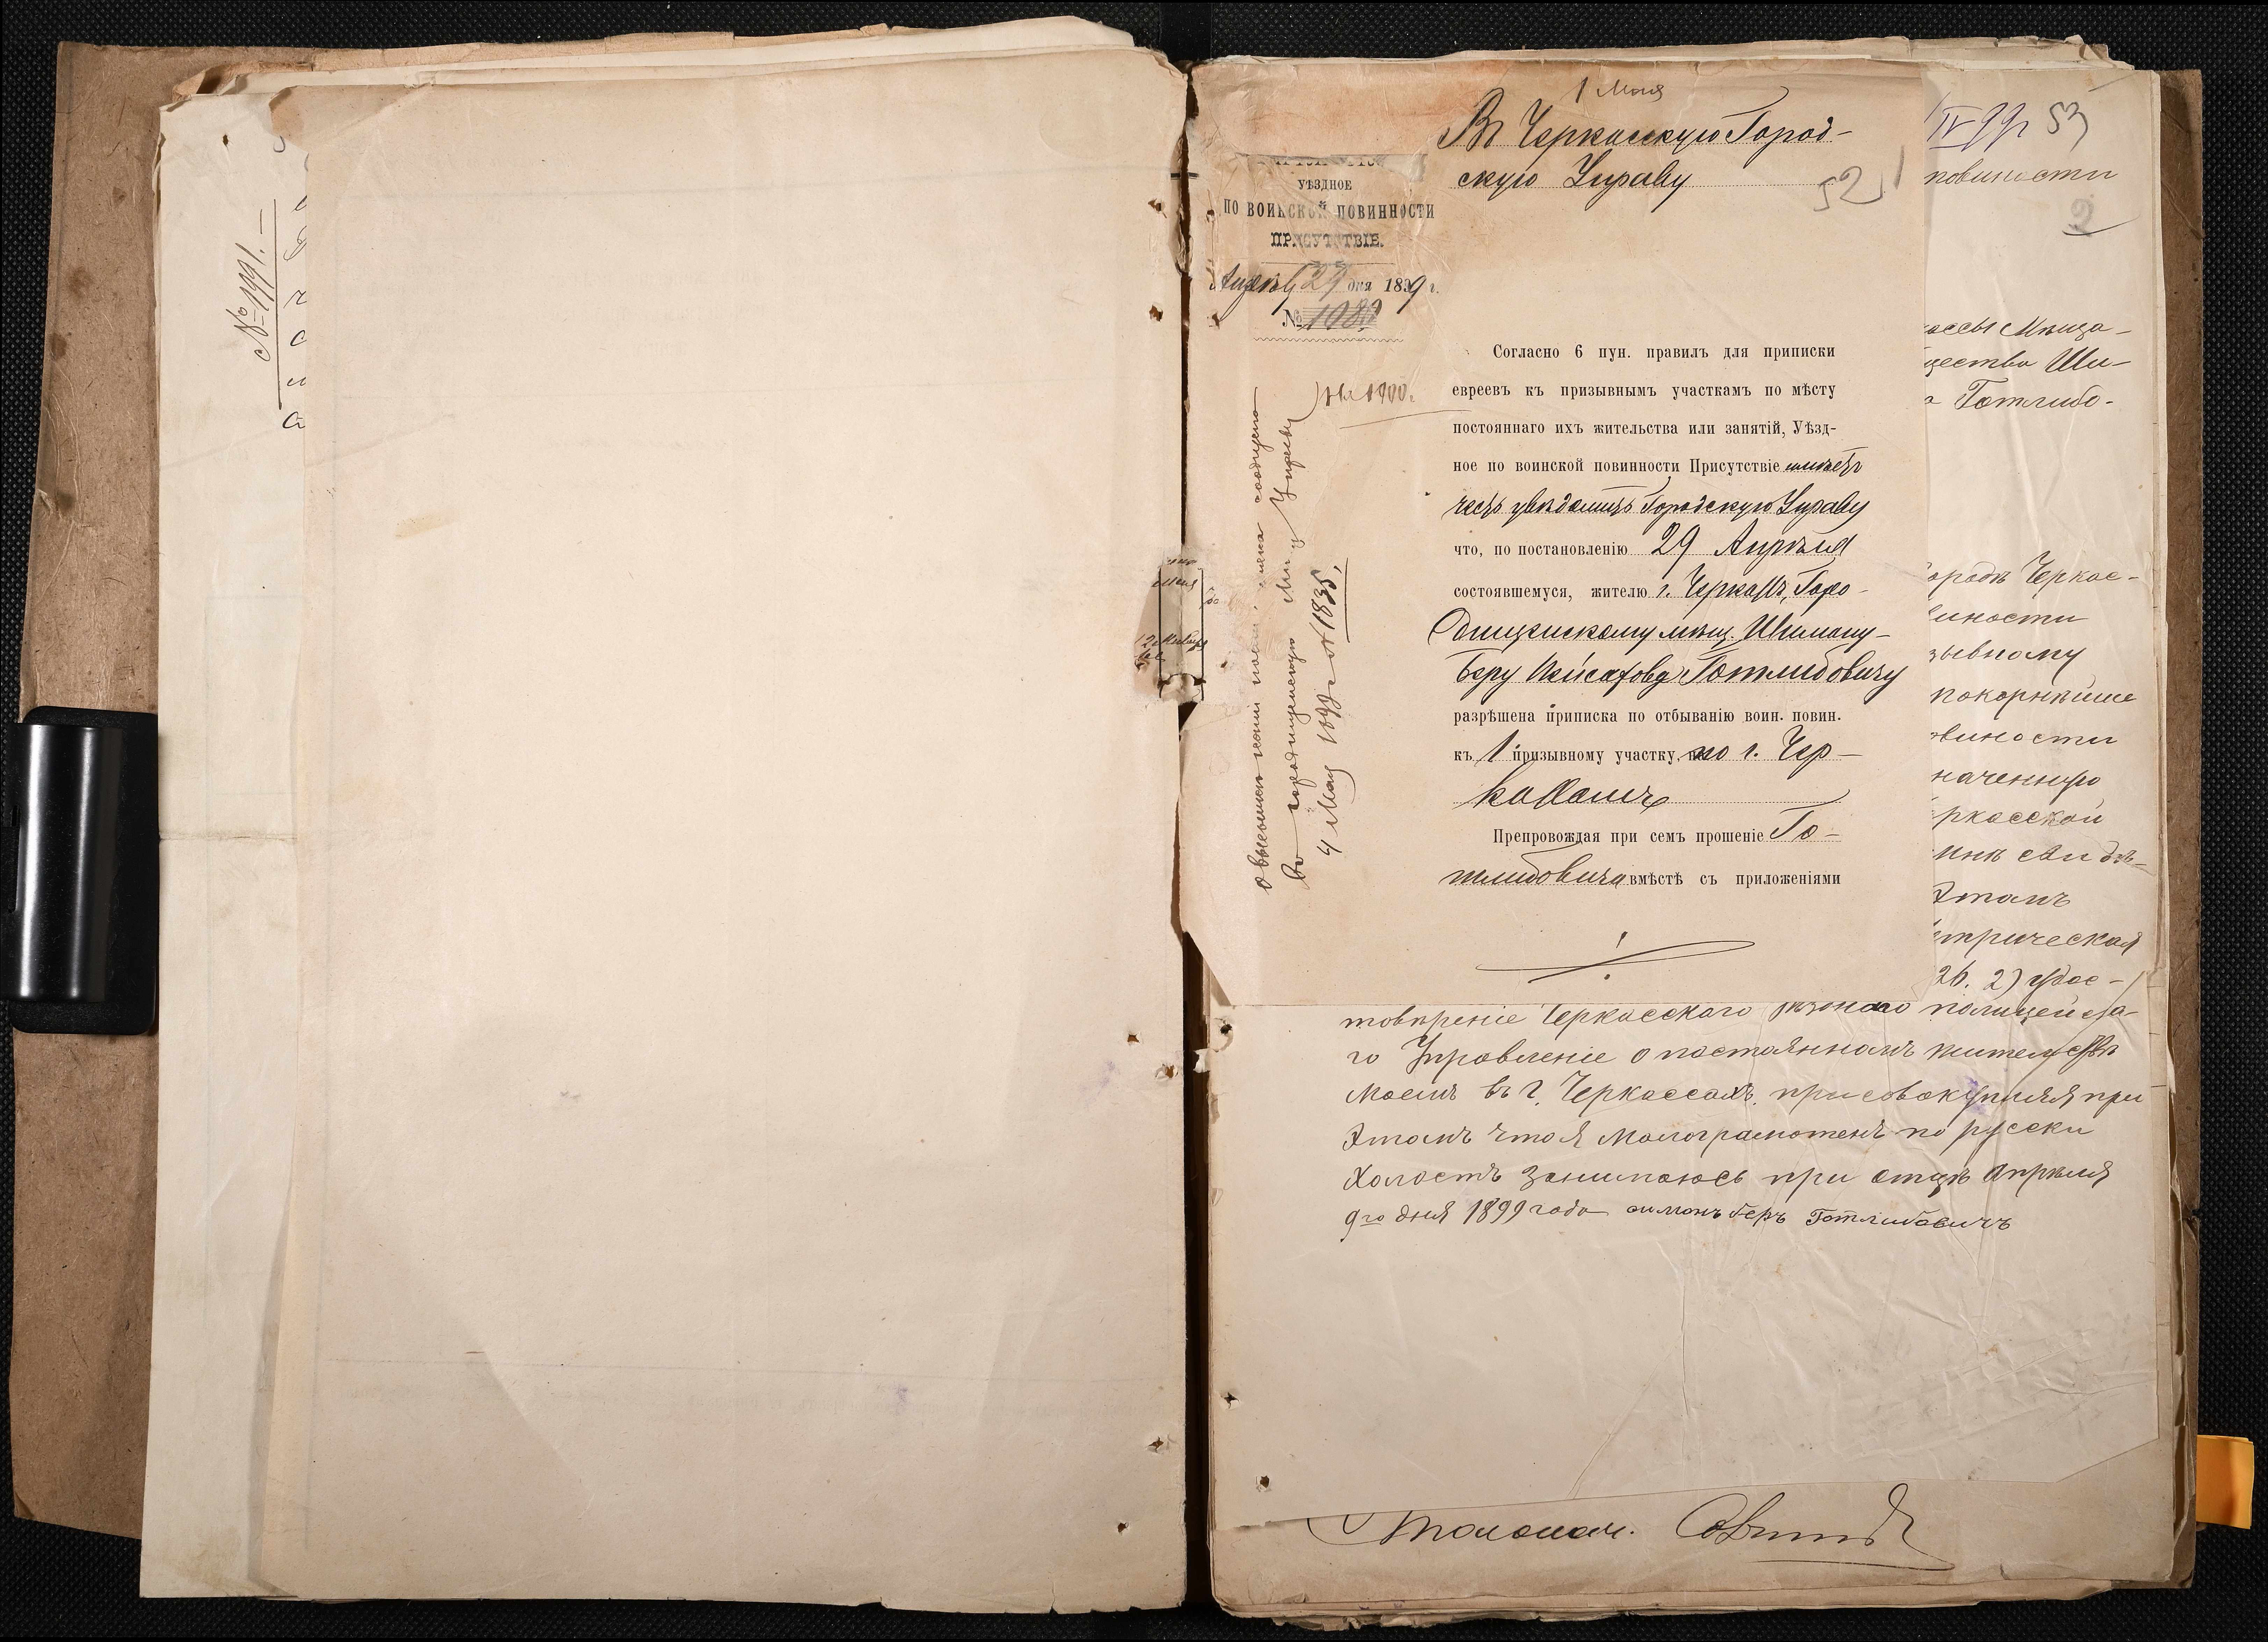 № 1991.
1 Мая
Въ Черкасскую Город-
скую Управу
52
УѢЗДНОЕ
ПО ВОИНСКОЙ ПОВИННОСТИ
ПРИСУТСТВІЕ.
29 дня 1899 г.
№ 1083
На 1900 г.
Согласно 6 пун. правилъ для приписки
евреевъ къ призывнымъ участкамъ по мѣсту
постояннаго ихъ жительства или занятій, Уѣзд-
ное по воинской повинности Присутствіе имѣетъ
честь увѣдомить Городскую Управу
что, по постановленію 29 Апрѣля
состоявшемуся, жителю г. Черкассъ, Горо-
дищенскому мѣщ. Шиману-
Беру Пейсахову Готлибовичу
разрѣшена приписка по отбыванію воин. повин.
къ 1 призывному участку, по г. Чер-
кассамъ
Препровождая при семъ прошеніе Го-
тлибовича вмѣстѣ съ приложеніями
въ городищенскую Мѣщ Управу
4 Мая 1899 г № 1835,
IV 99 г 53
повиности
2
ассы Мѣща-
щества Ши-
Готлибо-
ородѣ Черкас-
иности
зывному
покорнѣйше
виности
наченную
ркасской
мнѣ свидѣ-
этомъ
трическая
26. 2) удос-
товѣреніе Черкасскаго уѣзднаго полицейска-
го Управленіе о постоянномъ жительствѣ
моемъ въ г. Черкассахъ, присовокупляя при
этомъ что я малограмотенъ по русски
холостъ занимаюсь при отцѣ Апрѣля
9го дня 1899 года симонъ беръ Готлибовичъ
Столонач.